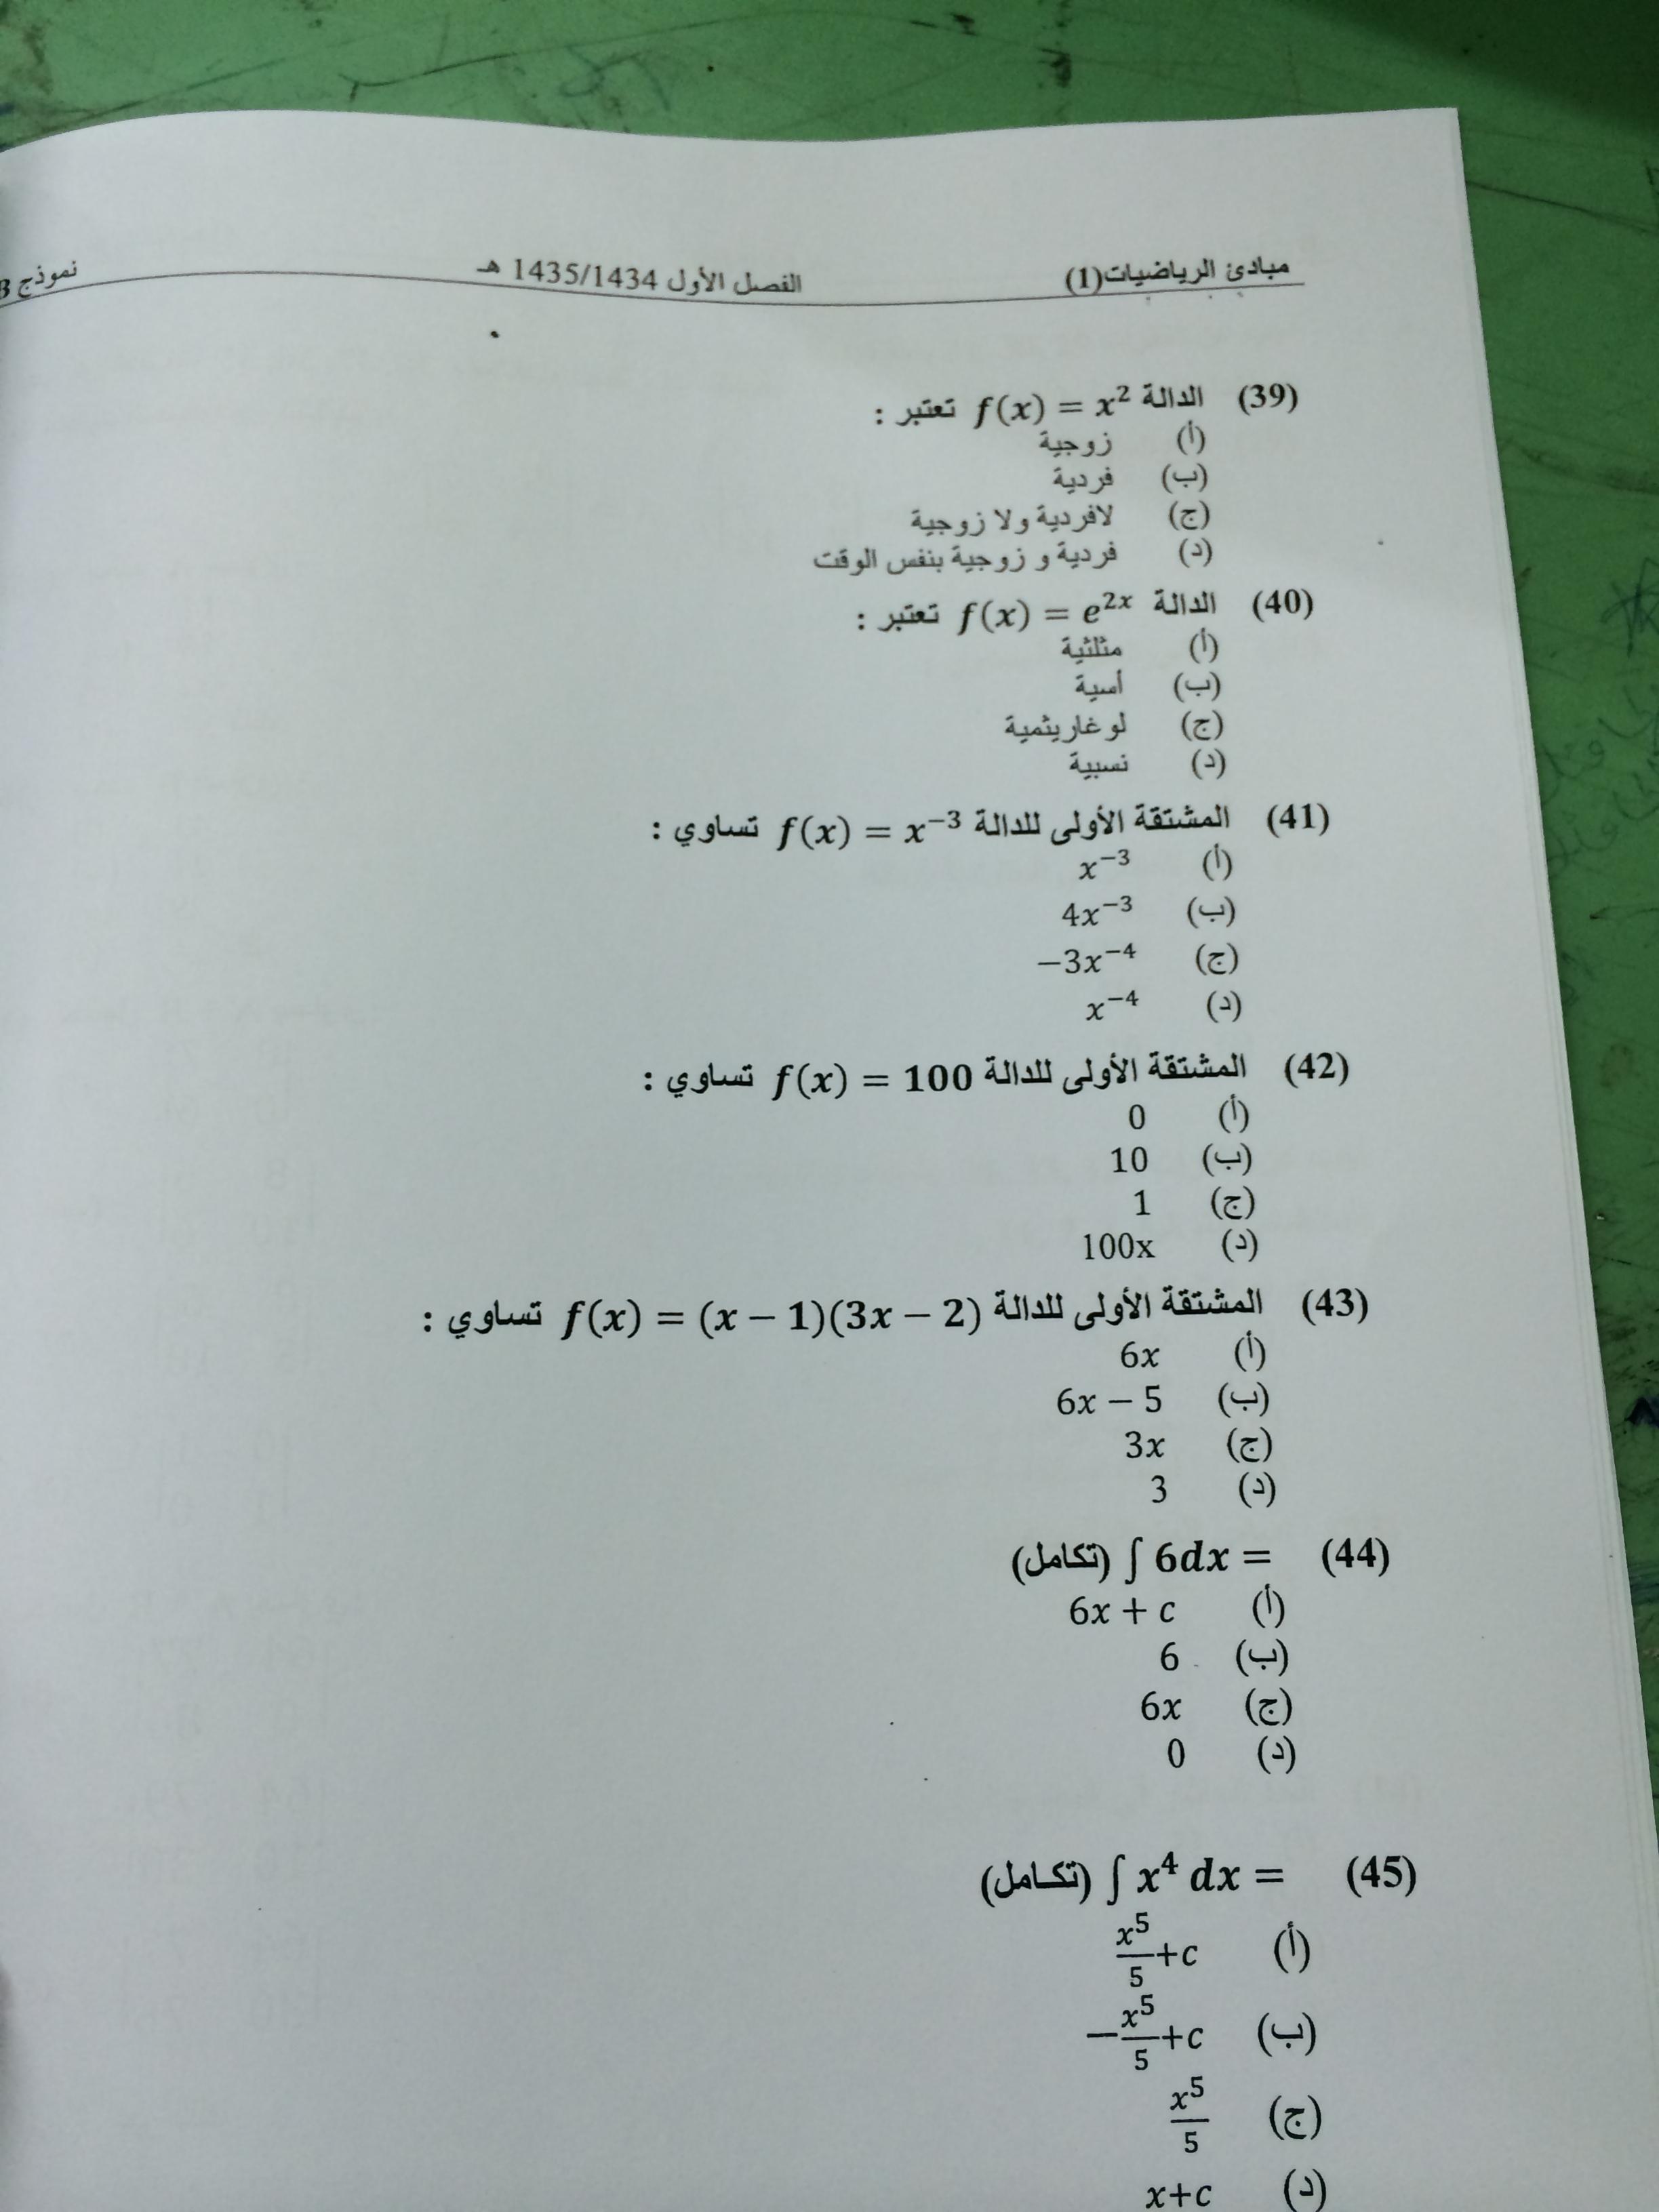 مبادئ الرياضيات(1) الفصل الأول 1435/1434 هـ نموذج B
(39) الدالة f(x) = x² تعتبر :
(أ) زوجية
(ب) فردية
(ج) لافردية ولا زوجية
(د) فردية و زوجية بنفس الوقت
(40) الدالة f(x) = e²ˣ تعتبر :
(أ) مثلثية
(ب) أسية
(ج) لوغاريثمية
(د) نسبية
(41) المشتقة الأولى للدالة f(x) = x⁻³ تساوي :
(أ) x⁻³
(ب) 4x⁻³
(ج) −3x⁻⁴
(د) x⁻⁴
(42) المشتقة الأولى للدالة f(x) = 100 تساوي :
(أ) 0
(ب) 10
(ج) 1
(د) 100x
(43) المشتقة الأولى للدالة f(x) = (x − 1)(3x − 2) تساوي :
(أ) 6x
(ب) 6x − 5
(ج) 3x
(د) 3
(44) ∫ 6dx = (تكامل)
(أ) 6x + c
(ب) 6
(ج) 6x
(د) 0
(45) ∫ x⁴ dx = (تكامل)
(أ) x⁵/5 +c
(ب) −x⁵/5 +c
(ج) x⁵/5
(د) x+c